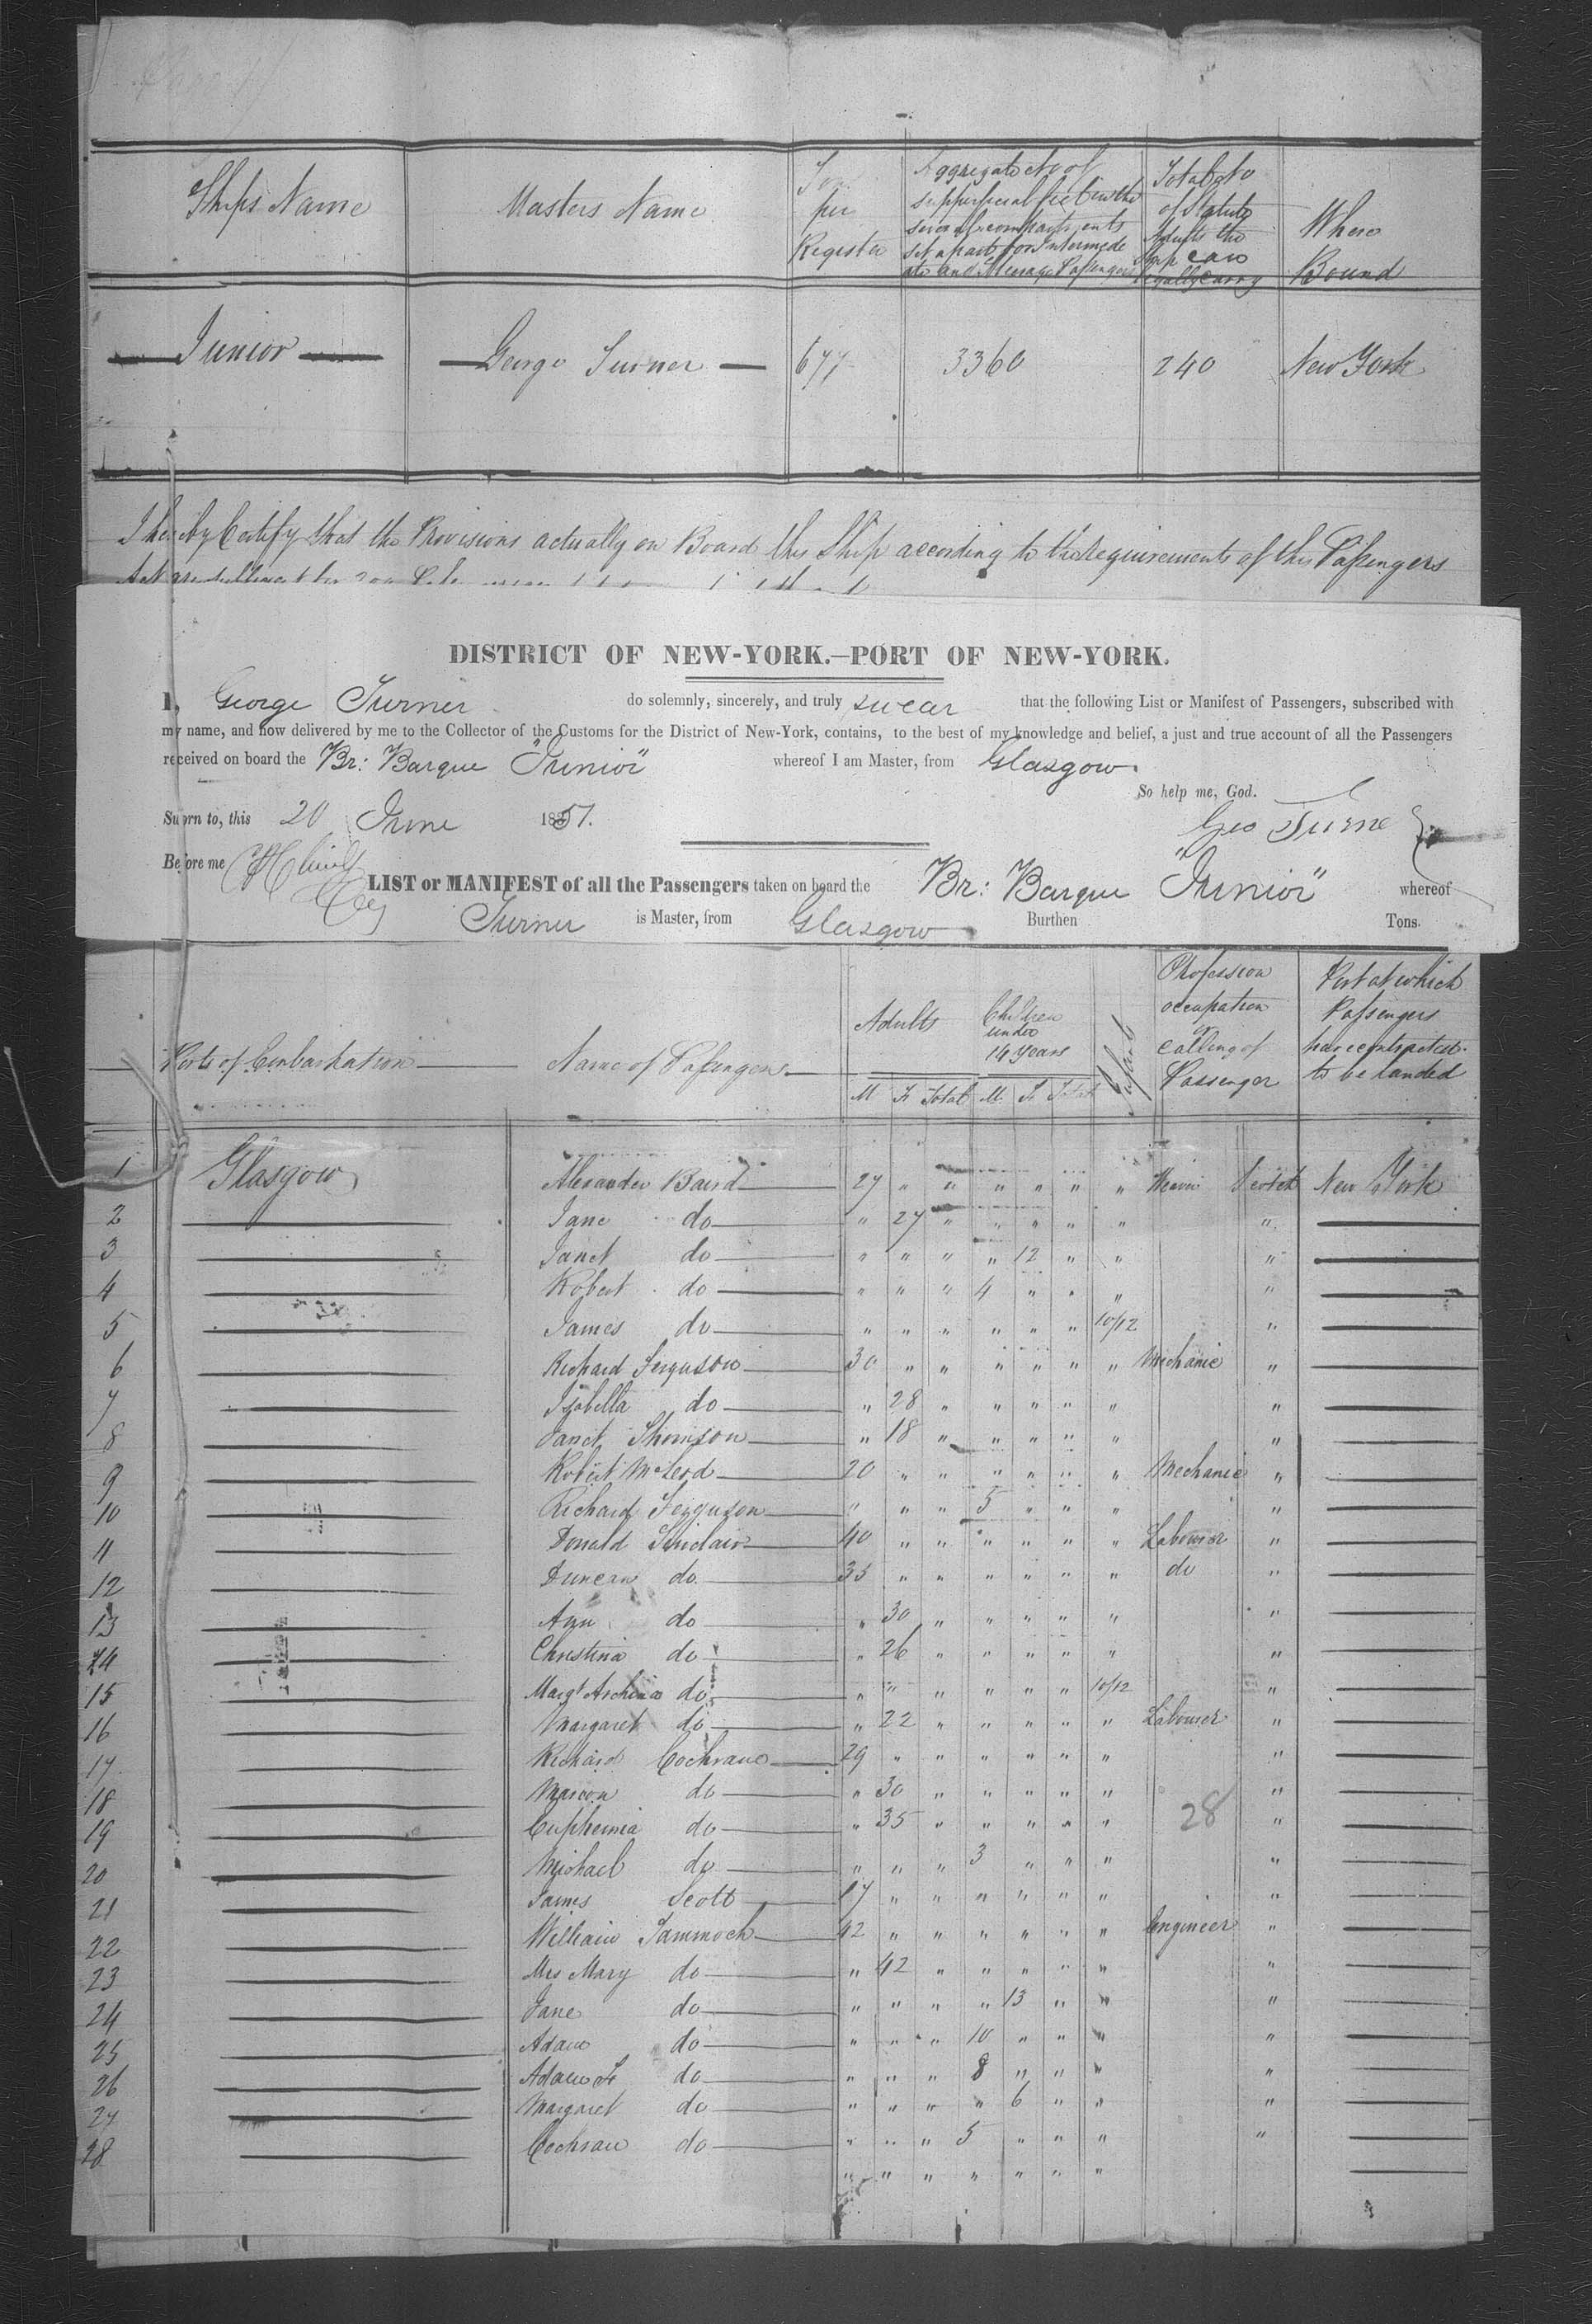 Ships Name Masters Name Ton per Register Aggregate No of supperficial feet in the several compartments set apart for Intermede ate and Steerage Passengers Total No of Statute Adults the Ship can legally carry Where Bound
Junior George Turner 677 3360 240 New York
I hereby Certify that the Provisions actually on Board this Ship according to the requirements of the Passengers
DISTRICT OF NEW-YORK.—PORT OF NEW-YORK.
I, George Turner do solemnly, sincerely, and truly swear that the following List or Manifest of Passengers, subscribed with
my name, and now delivered by me to the Collector of the Customs for the District of New-York, contains, to the best of my knowledge and belief, a just and true account of all the Passengers
received on board the Br: Barque "Junior" whereof I am Master, from Glasgow.
So help me, God.
Sworn to, this 20 June 1851.
Geo Turner
Before me
LIST or MANIFEST of all the Passengers taken on board the Br: Barque "Junior" whereof
Turner is Master, from Glasgow Burthen Tons.
Ports of Embarkation Name of Passengers Adults Children under 14 Years Infants Profession occupation or calling of Passenger Port at which Passengers have contracted to be landed
M F Total M. F Total
1 Glasgow Alexander Baird 27 " " " " " " Weaver Scotch New York
2 Jane do " 27 " " " " " "
3 Janet do " " " " 12 " " "
4 Robert do " " " 4 " " " "
5 James do " " " " " " 10/12 "
6 Richard Ferguson 30 " " " " " " Mechanic "
7 Isabella do " 28 " " " " " "
8 Janet Thomson " 18 " " " " " "
9 Robert McLeod 20 " " " " " " Mechanic "
10 Richard Ferguson " " " 5 " " " "
11 Donald Sinclair 40 " " " " " " Labourer "
12 Duncan do 35 " " " " " " do "
13 Ann do " 30 " " " " " "
14 Christina do " 26 " " " " " "
15 Margt do " " " " " " 10/12 "
16 Margaret do " 22 " " " " " Labourer "
17 Richard Cochrane 29 " " " " " " "
18 Marion do " 30 " " " " " "
19 Euphemia do " 35 " " " " " 28 "
20 Michael do " " " 3 " " " "
21 James Scott 17 " " " " " " "
22 William Tammoch 42 " " " " " " Engineer "
23 Mrs Mary do " 42 " " " " " "
24 Jane do " " " " 13 " " "
25 Adam do " " " 10 " " " "
26 Adam do " " " 8 " " " "
27 Margaret do " " " " 6 " " "
28 Cochran do " " " 5 " " " "
" " " " " " "